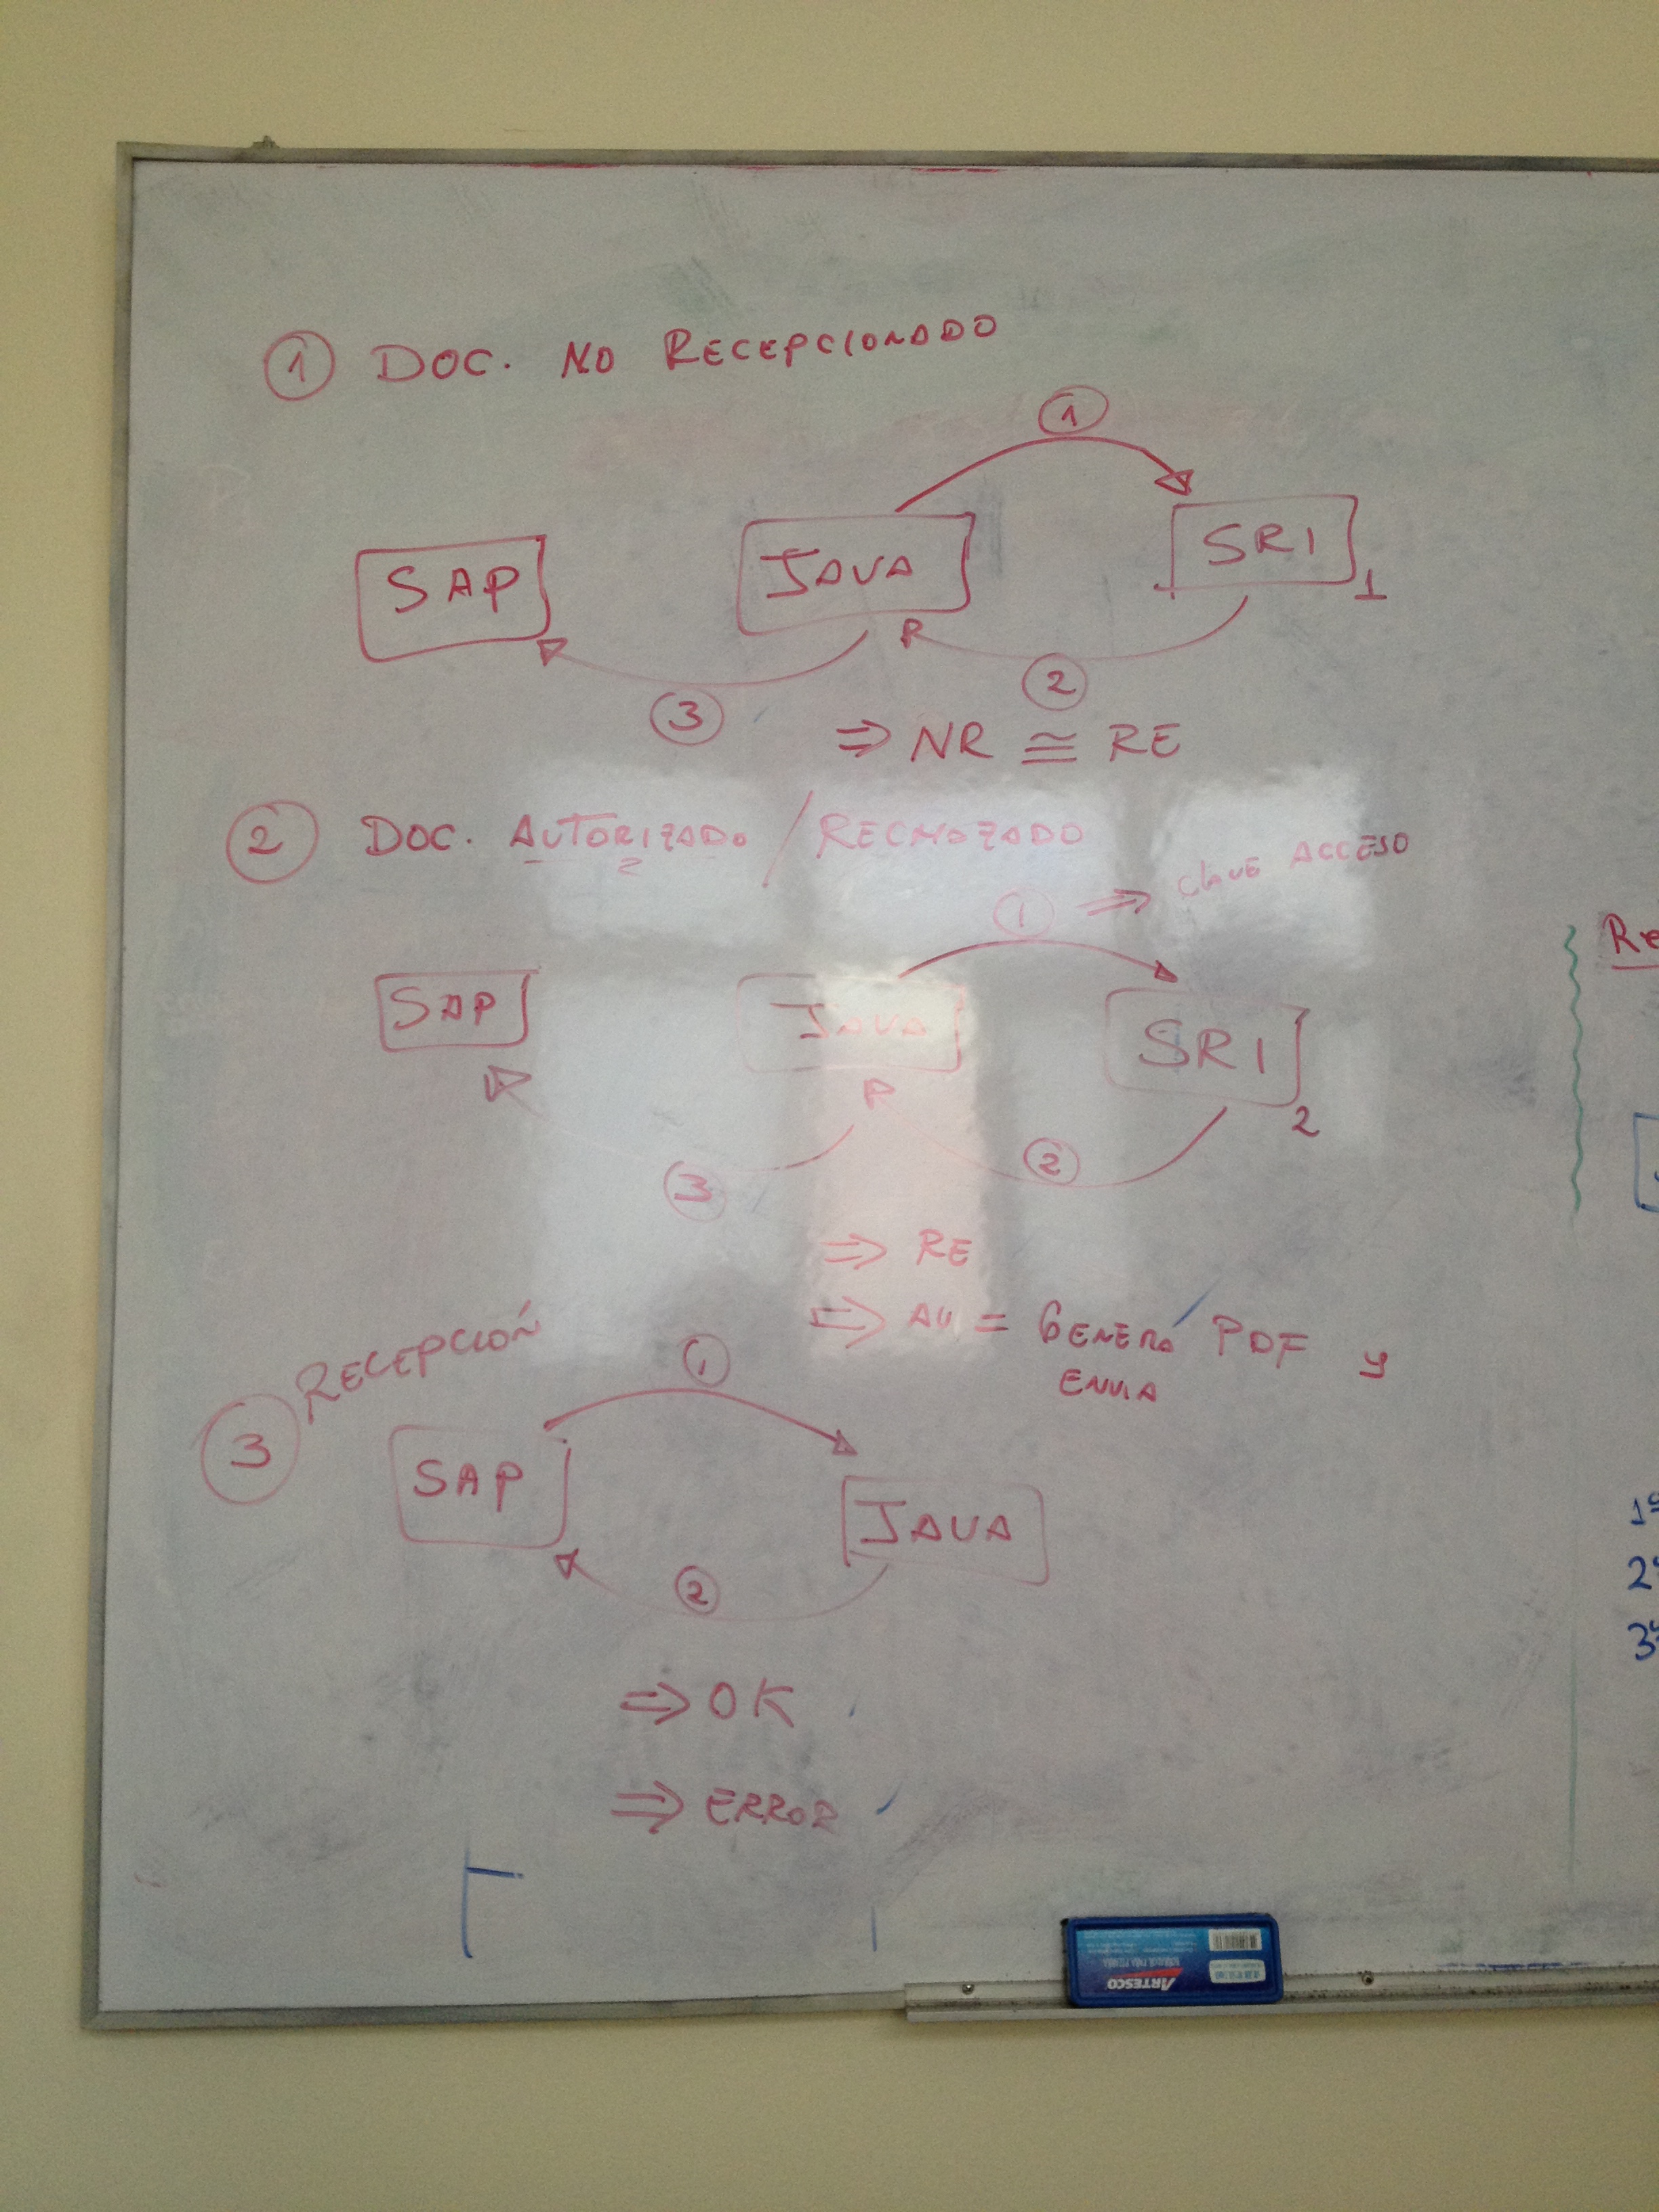 ① DOC. NO RECEPCIONADO
①
SAP JAVA SRI 1
③ ②
⇒ NR ≅ RE
② DOC. AUTORIZADO / RECHAZADO
① ⇒ CLAVE ACCESO
SAP JAVA SRI 2
③ ②
⇒ RE
⇒ AU = GENERA PDF Y
ENVIA
③ RECEPCIÓN
①
SAP JAVA
②
⇒ OK
⇒ ERROR
Re
1º
2º
3º
ARTESCO